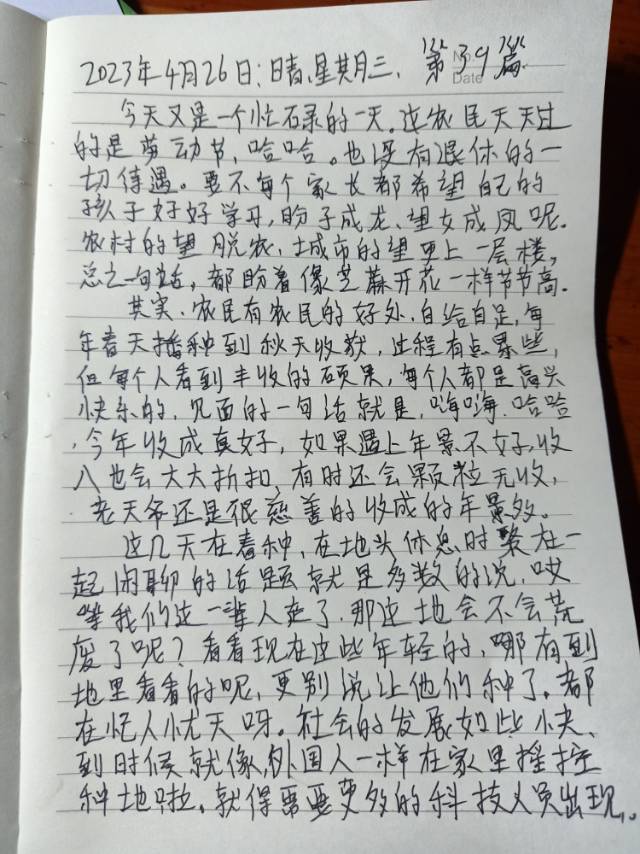 2023年4月26日:晴,星期三、第39篇
No.
Date
今天又是一个忙碌的一天。这农民天天过
的是劳动节,哈哈。也没有退休的一
切待遇。要不每个家长都希望自己的
孩子好好学习,盼子成龙、望女成凤呢.
农村的望脱农、城市的望更上一层楼,
总之一句话,都盼着像芝蔴开花一样节节高.
其实.农民有农民的好处.自给自足,每
年春天播种到秋天收获,过程有点累些,
但每个人看到丰收的硕果,每个人都是高兴
快乐的,见面的一句话就是,嗨嗨.哈哈
,今年收成真好,如果遇上年景不好,收
入也会大大折扣,有时还会颗粒无收,
老天爷还是很慈善的收成的年景多。
这几天在春种,在地头休息时聚在一
起闲聊的话题就是多数的说,哎
等我们这一辈人老了.那这地会不会荒
废了呢?看看现在这些年轻的,哪有到
地里看看的呢,更别说让他们种了。都
在忆人忧天呀。社会的发展如些快、
到时候就像外国人一样在家里摇控
种地啦,就得需要更多的科技人员出现.。